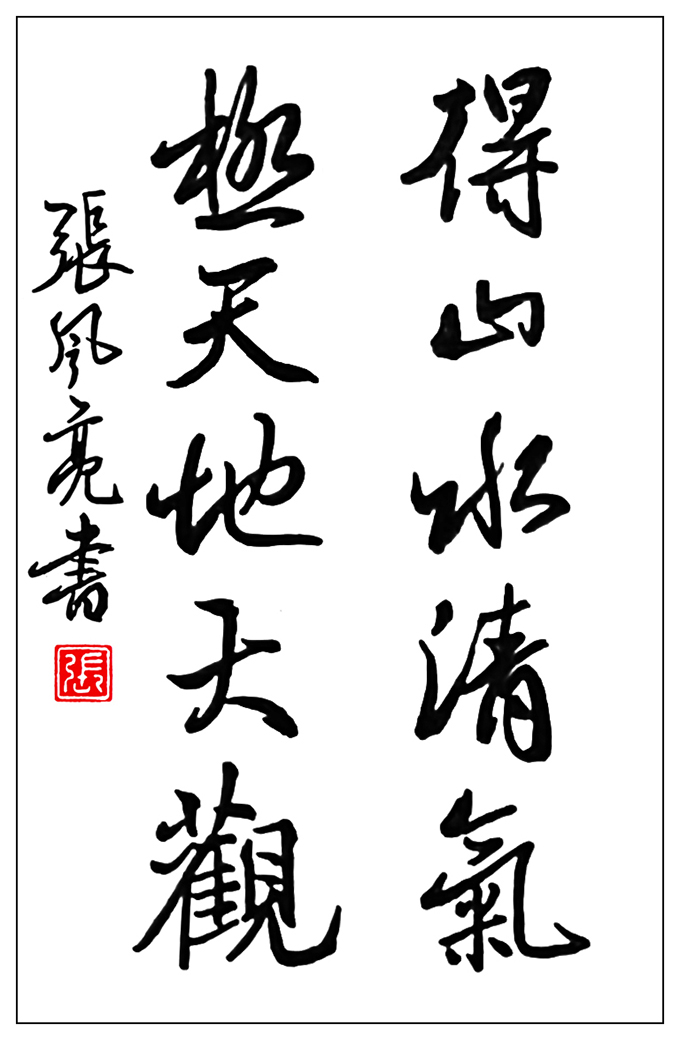 得山水清氣
極天地大觀
張風亮書
張